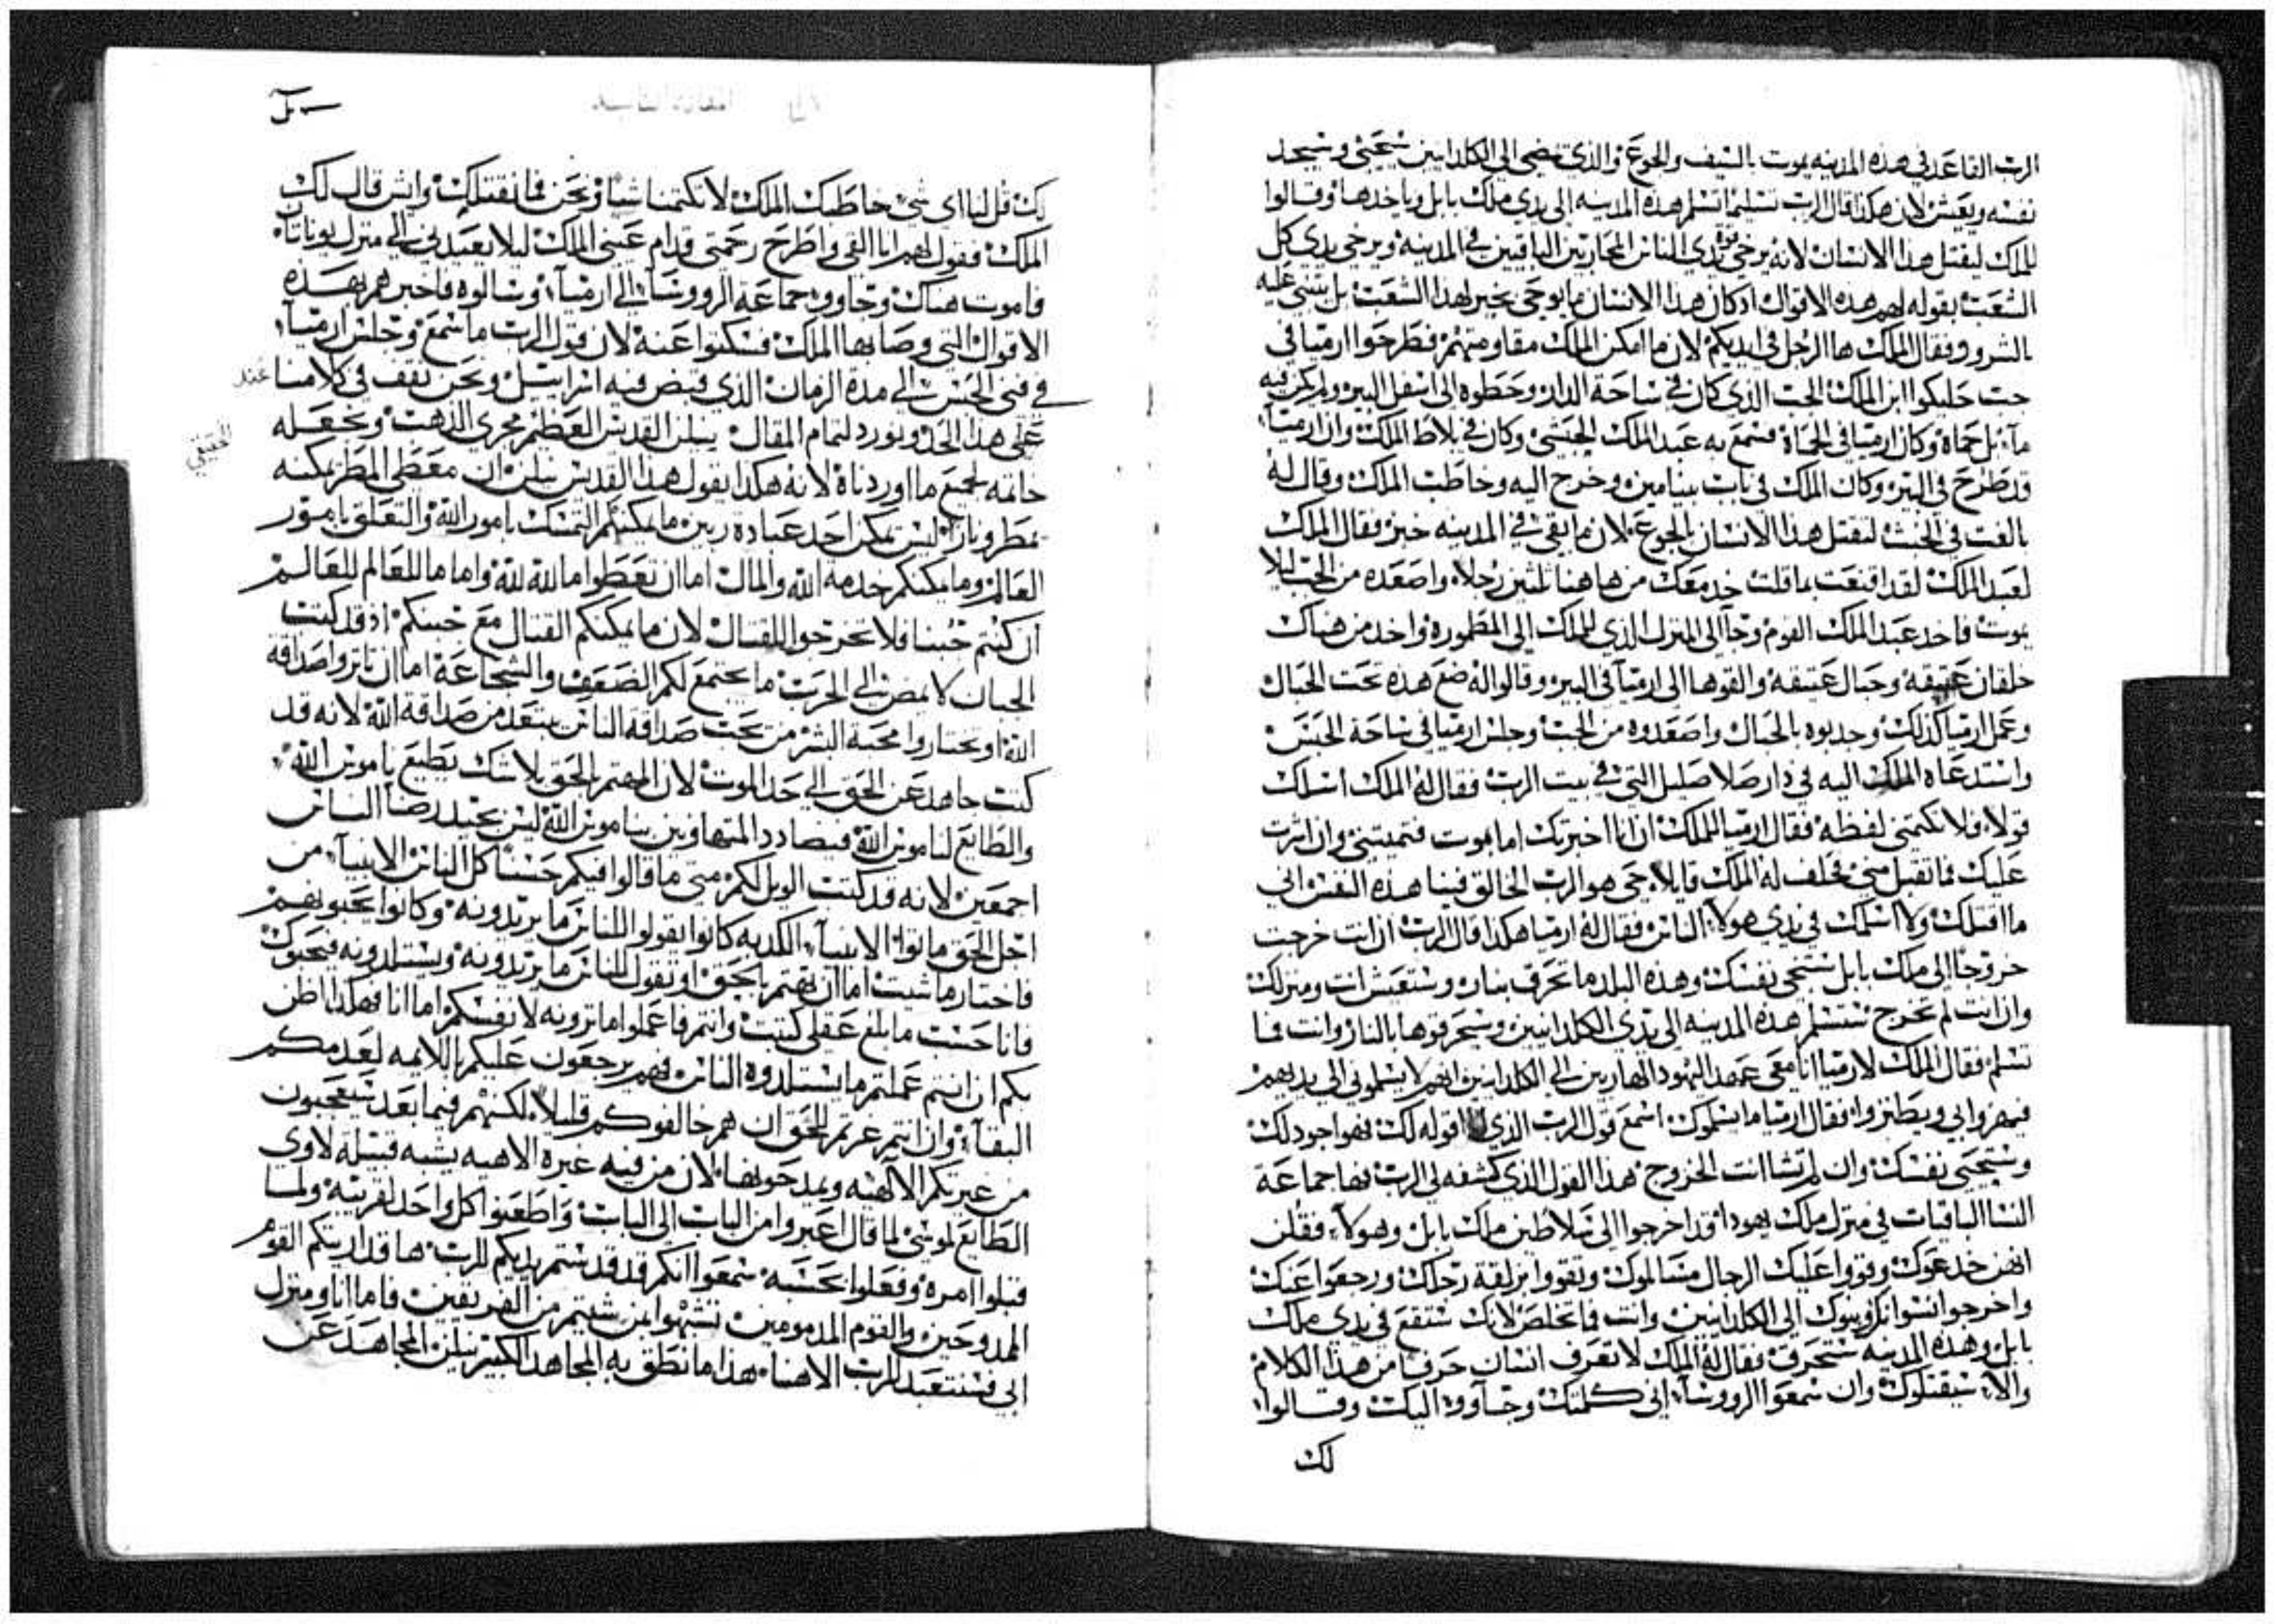 الرب القاعد في هذه المدينه يموت بالسيف والجوع والذي يمضي الى الكلدانيين سيحيى وسيجد
نفسه ويعيش لان هكذا قال الرب تسليمًا تسلم هذه المدينه الى يدي ملك بابل وياخدها وقالوا
للملك ليقتل هذا الانسان لانه يرخي قوة يدي الناس المحاربين الباقيين في المدينه ويرخي يدي كل
الشعب بقوله لهم هذه الاقوال اد كان هذا الانسان ما يوحي بخير لهذا الشعب بل عليه
بالشرور فقال الملك ها الرجل في ايديكم لان ما امكن الملك مقاومتهم فطرحوا ارميا في
جب حليكوا ابن الملك الجب الذي كان في ساحة الدار وحطوه الى اسفل البير ولم يكن فيه
مآء بل حماة وكان ارميا في الحماة فسمع به عبد الملك الحبشي وكان في بلاط الملك وان ارميآ
قد طرح في البير وكان الملك في باب بنيامين وخرج اليه وخاطب الملك وقال له
بالغت في الخبث لتقتل هذا الانسان بالجوع لان ما بقي في المدينه خبز فقال الملك
لعبد الملك لقد اقنعت بما قلت خد معك من هاهنا ثلثين رجلاً واصعده من الجب ليلا
يموت فاخد عبد الملك القوم وجآ الى المنزل الذي للملك الى المطمورة واخد من هناك
خلقان عتيقه وحبال عتيقه والقوها الى ارميآ في البير وقالوا له ضع هذه تحت الحبال
وعمل ارميا كذلك وجدبوه بالحبال واصعدوه من الجب وجلس ارميا في ساحة الحبس
واستدعاه الملك اليه في دار صلاصليل التي في بيت الرب فقال له الملك اسلك
قولاً ولا تكتمني لفظه فقال ارميا للملك ان انا اخبرتك اما يموت فتميتني وان اشرت
عليك فما تقبل مني فحلف له الملك قايلاً حي هو الرب الخالق فينا هذه النفس اني
ما اقتلك ولا اسلمك في يدي هولاء الناس فقال له ارميا هكذا قال الرب ان انت خرجت
خروجًا الى ملك بابل ستنجي نفسك وهذه البلد ما تحرق بنار وستعيش انت ومنزلك
وان انت لم تخرج ستسلم هذه المدينه الى يدي الكلدانيين وسيحرقوها بالنار وانت فما
تسلم فقال الملك لارميا انا معي عهد اليهود الهاربين الى الكلدانيين انهم لا يسلموني الى يديهم
فيهزوا بي ويطنزوا فقال ارميا ما يسلموك اسمع قول الرب الذي اقوله لك فهو اجود لك
وستحيى نفسك وان لم تشا انت الخروج فهذا القول الذي كشفه لي الرب فها جماعة
النسا الباقيات في منزل ملك يهودا قد اخرجوا الى سلاطين ملك بابل وهولاء فقلن
انهن خدعوك وقووا عليك الرجال مسالموك وتقووا بزلقة رجلك ورجعوا عنك
واخرجوا نسوانك وبنوك الى الكلدانيين وانت فما تخلص لانك ستقع في يدي ملك
بابل وهذه المدينه ستحرق فقال له الملك لا تعرف انسان حرفًا من هذا الكلام
والا سيقتلوك وان سمعوا الروسآء اني كلمتك وجآووا اليك وقالوا
لك
لك قل لنا اي شي خاطبك الملك لا تكتمنا شيا ونحن فما نقتلك وايش قال لك
الملك فقول لهم انا القي واطرح رحمتي قدام عيني الملك ليلا يعيدني الى منزل يوناتان
فاموت هناك وجاووا جماعة الروسآء الى ارميآء وسالوه فاخبرهم بهذه
الاقوال التي وصا بها الملك فسكتوا عنه لان قول الرب ما سمع وجلس ارميآء
في فنى الحبس الى مدة الزمان الذي قبض فيه اسراييل ونحن نقف في كلامنا عند
على هذا الحد ونورد لتمام المقال نيلن القديس العظيم مجري الذهب ونجعله
خاتمه لجميع ما اوردناه لانه هكذا يقول هذا القديس نيلن ان معطي المطر يمكنه
يمطر ونارًا ليس يمكن احد عبادة ربين ما يمكنكم التمسك بامور الله والتعلق بامور
العالم وما يمكنكم خدمة الله والمال اما ان تعطوا ما لله لله واما ما للعالم للعالم
ان كنتم جبنا فلا تخرجوا للقتال لان ما يمكنكم القتال مع جبنكم اذ قد كتبت
الجبان لا يمض الى الحرب ما يجتمع لكم الضعف والشجاعة اما ان تاثروا صداقة
الله او تختاروا محبة البشر من يحب صداقة الناس يبتعد من صداقة الله لانه قد
كتب جاهد عن الحق الى حد الموت لان المهتم بالحق بلا شك يطيع ناموس الله
والطايع لناموس الله فيضادد المتهاونين بناموس الله ليس بجيد رضا الناس
اجمعين لانه قد كتب الويل لكم متى ما قالوا فيكم حسنًا كل الناس الانبيآء من
اجل الحق ماتوا الانبيآء الكدبه كانوا يقولوا للناس ما يريدونه وكانوا يحبوهم
فاختار ما شيت اما ان تهتم بالحق او تقول للناس ما يريدونه ويستلدونه فيحبوك
فانا حسب ما بلغ عقلي كتبت وانتم فاعملوا ما ترونه لانفسكم اما انا فهكذا اظن
بكم ان انتم عملتم ما يستلدوه الناس فهم يرجعون عليكم باللايمه لعدمكم
البقآء وان انتم غرتم للحق ان هم خالفوكم قليلاً لكنهم فيما بعد سيعجبون
من غيرتكم الالهيه ويمدحونها لان من فيه غيرة الاهيه يشبه قبيلة لاوي
الطايع لموسى لما قال اعبروا من الباب الى الباب واطعنوا كل واحد لقريبه ولما
قبلوا امره وفعلوا بحسبه سمعوا انكم قد قدستم يديكم للرب ها قد اريتكم القوم
الممدوحين والقوم المدمومين تشبهوا بمن شيتم من الفريقين فاما انا ومنزل
ابي فسنتعبد للرب الاهنا هذا ما نطق به المجاهد الكبير نيلن المجاهد عن
الحقيقي